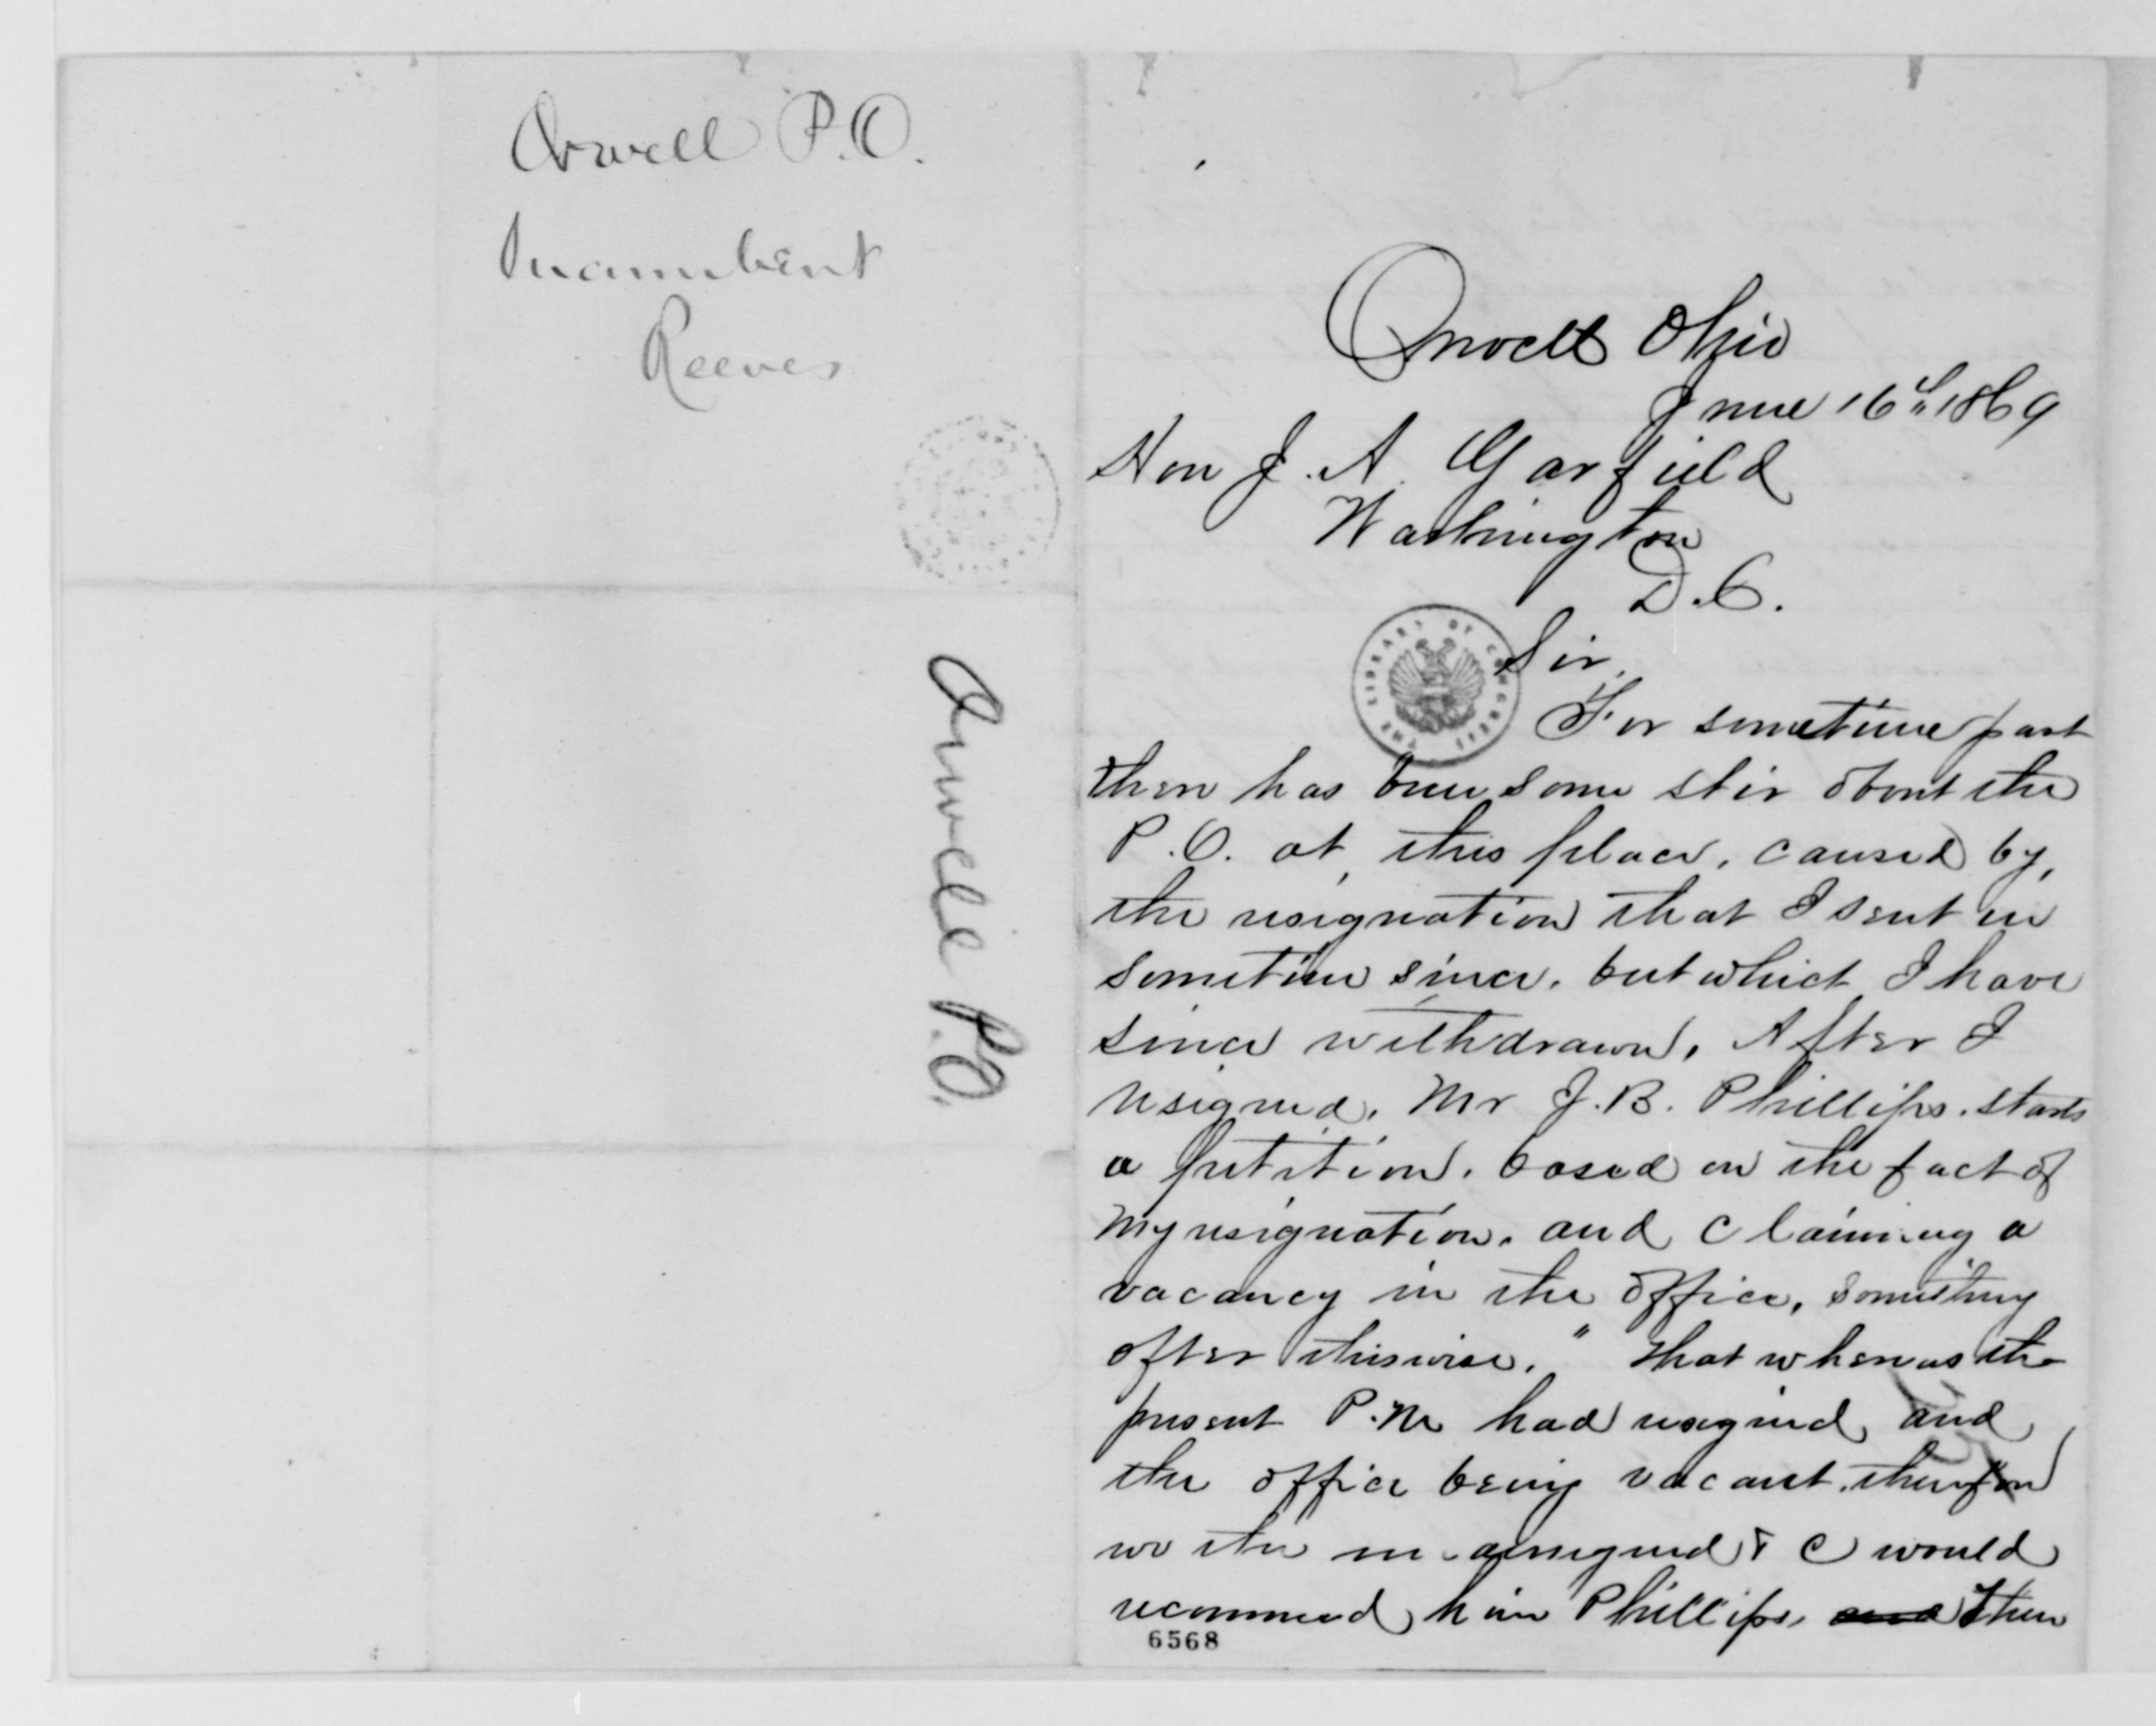 Orwell P.O.
Incumbent
Reeves
Orwell P.O.
Orwell Ohio
June 16th 1869
Hon J. A. Garfield
Washington
D.C.
THE LIBRARY OF CONGRESS
Sir,
For sometime past
there has been some stir about the
P.O. at this place, caused by,
the resignation that I sent in
sometime since. but which I have
since withdrawn. After I
resigned. Mr J.B. Phillips. starts
a petition. based on the fact of
my resignation. and claiming a
vacancy in the office, something
after thiswise. " that whereas the
present P.M had resigned, and
the office being vacant. therefore
we the undersigned & C would
recommend him Phillips, and then
6568